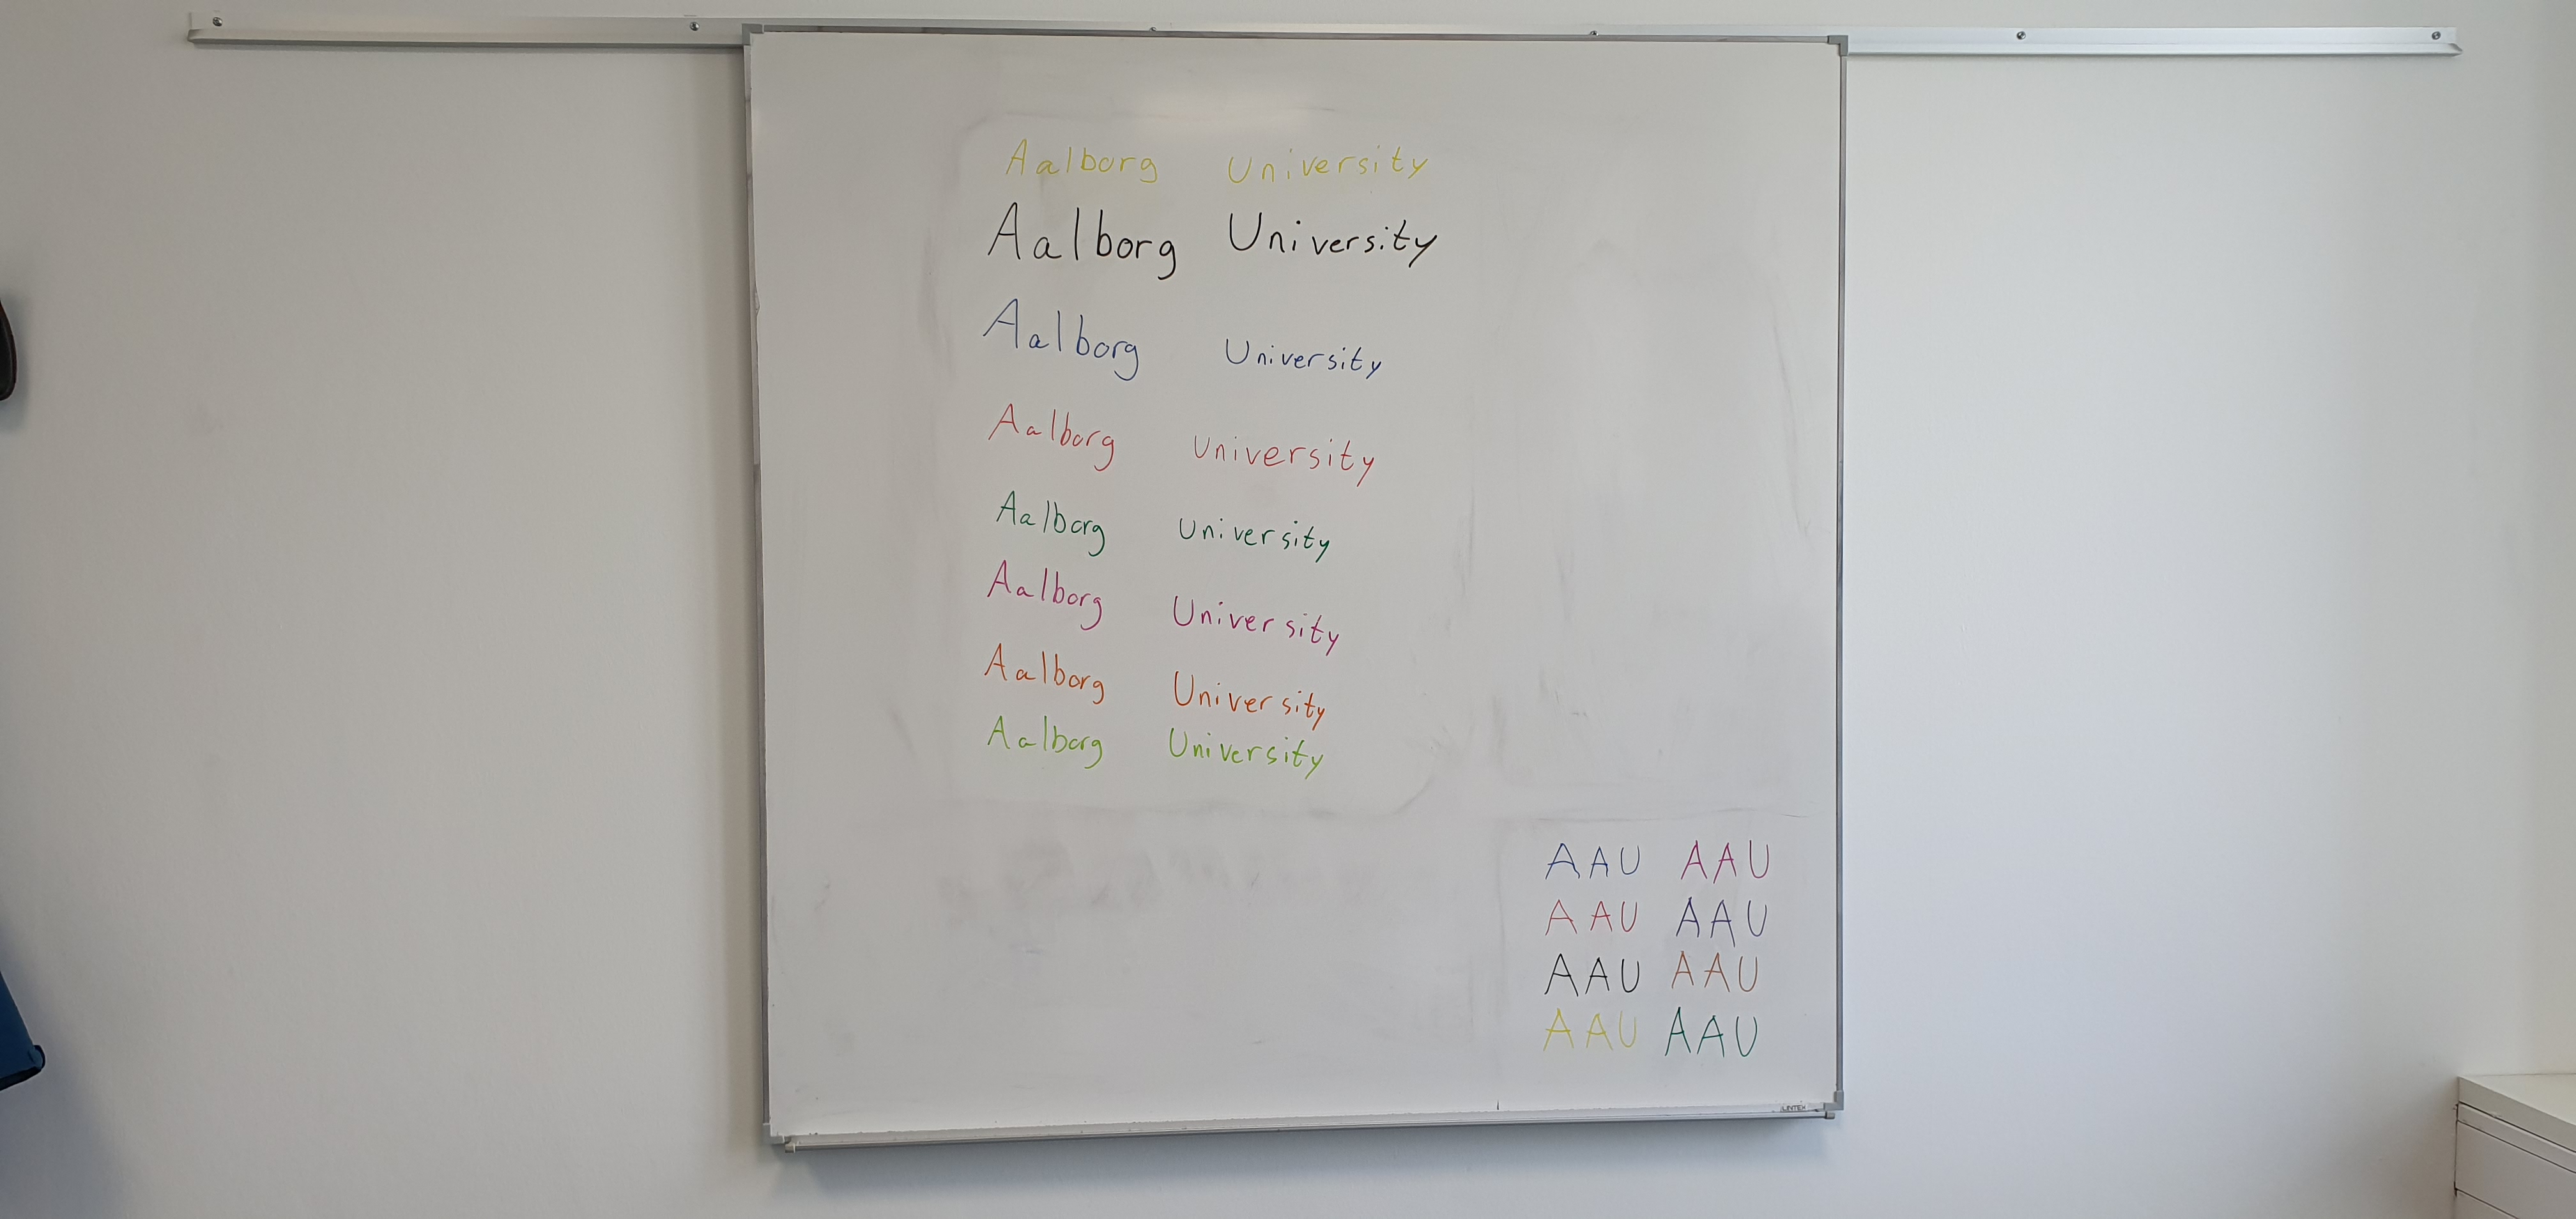 Aalborg University
Aalborg University
Aalborg University
Aalborg University
Aalborg University
Aalborg University
Aalborg University
Aalborg University
AAU AAU
AAU AAU
AAU AAU
AAU AAU
LINTEX